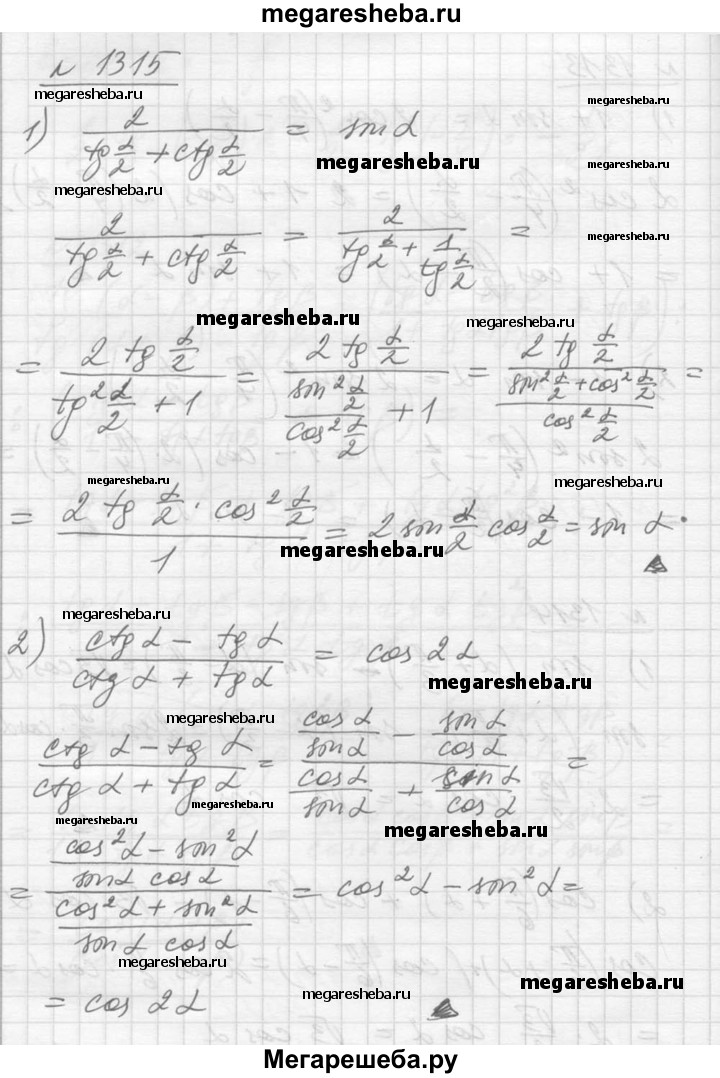 megaresheba.ru
№ 1315
megaresheba.ru
megaresheba.ru
1) 2 / (tg α/2 + ctg α/2) = sin α
megaresheba.ru
megaresheba.ru
2 / (tg α/2 + ctg α/2) = 2 / (tg α/2 + 1/(tg α/2)) =
megaresheba.ru
megaresheba.ru
= (2 tg α/2) / (tg² α/2 + 1) = (2 tg α/2) / ((sin² α/2)/(cos² α/2) + 1) = (2 tg α/2) / ((sin² α/2 + cos² α/2)/(cos² α/2)) =
megaresheba.ru
megaresheba.ru
= (2 tg α/2 · cos² α/2) / 1 = 2 sin α/2 cos α/2 = sin α.
megaresheba.ru
megaresheba.ru
2) (ctg α - tg α) / (ctg α + tg α) = cos 2α
megaresheba.ru
megaresheba.ru
(ctg α - tg α) / (ctg α + tg α) = (cos α/sin α - sin α/cos α) / (cos α/sin α + sin α/cos α) =
megaresheba.ru
megaresheba.ru
megaresheba.ru
= ((cos² α - sin² α)/(sin α cos α)) / ((cos² α + sin² α)/(sin α cos α)) = cos² α - sin² α =
megaresheba.ru
megaresheba.ru
megaresheba.ru
= cos 2α
Мегарешеба.ру